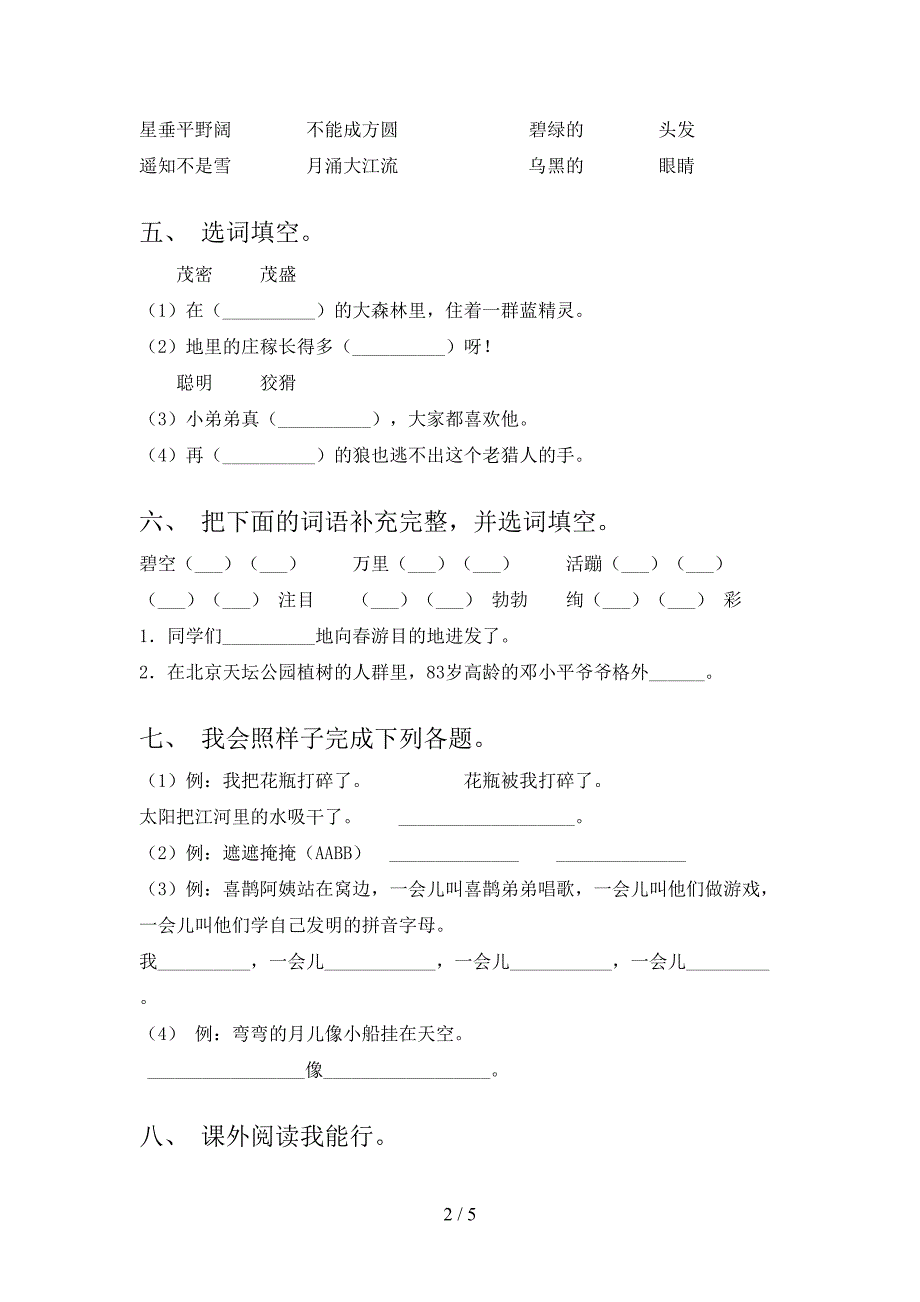 星垂平野阔　　不能成方圆　　碧绿的　　头发
遥知不是雪　　月涌大江流　　乌黑的　　眼睛
五、 选词填空。
茂密　　茂盛
（1）在（__________）的大森林里，住着一群蓝精灵。
（2）地里的庄稼长得多（__________）呀！
聪明　　狡猾
（3）小弟弟真（__________），大家都喜欢他。
（4）再（__________）的狼也逃不出这个老猎人的手。
六、 把下面的词语补充完整，并选词填空。
碧空（___）（___）　　万里（___）（___）　　活蹦（___）（___）
（___）（___） 注目　　（___）（___） 勃勃　　绚（___）（___） 彩
1．同学们__________地向春游目的地进发了。
2．在北京天坛公园植树的人群里，83岁高龄的邓小平爷爷格外______。
七、 我会照样子完成下列各题。
（1）例：我把花瓶打碎了。　　花瓶被我打碎了。
太阳把江河里的水吸干了。　　___________________。
（2）例：遮遮掩掩（AABB）　______________　　______________
（3）例：喜鹊阿姨站在窝边，一会儿叫喜鹊弟弟唱歌，一会儿叫他们做游戏，
一会儿叫他们学自己发明的拼音字母。
我__________，一会儿____________，一会儿___________，一会儿_________
。
（4） 例：弯弯的月儿像小船挂在天空。
_________________像__________________。
八、 课外阅读我能行。
2 / 5